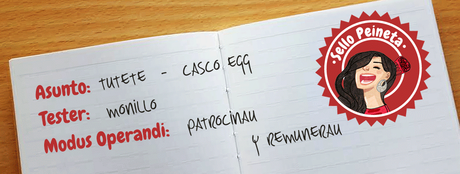 Sello Peineta
Asunto: TUTETE - CASCO EGG
Tester: MONILLO
Modus Operandi: PATROCINAU
Y REMUNERAU